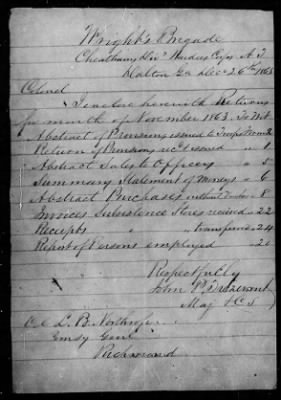 Wright's Brigade
Cheatham's Div Hardees Corps A. T.
Dalton Ga Dec 26th 1863
Colonel
I enclose herewith Returns
for month of November 1863. To Wit
Abstract of Provisions issued to Troops from 2
Return of Provisions rec'd issued " 1
Abstract Sales to Officers " 5
Summary Statement of Moneys " 6
Abstract Purchases " 8
Invoices Subsistence Stores received " 22
Receipts " " transferred " 24
Report of Persons employed " 20
Respectfully
John P.
Maj & C S
Col L. B. Northrop
Comsy Genl
Richmond